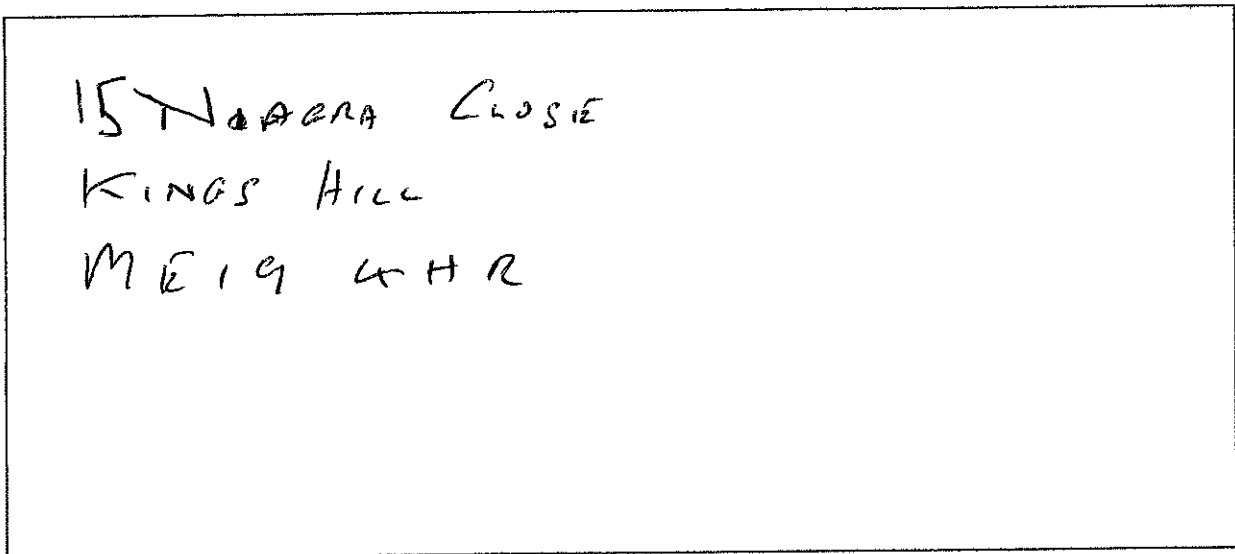 15 NIAGRA CLOSE
KINGS HILL
ME19 4HR